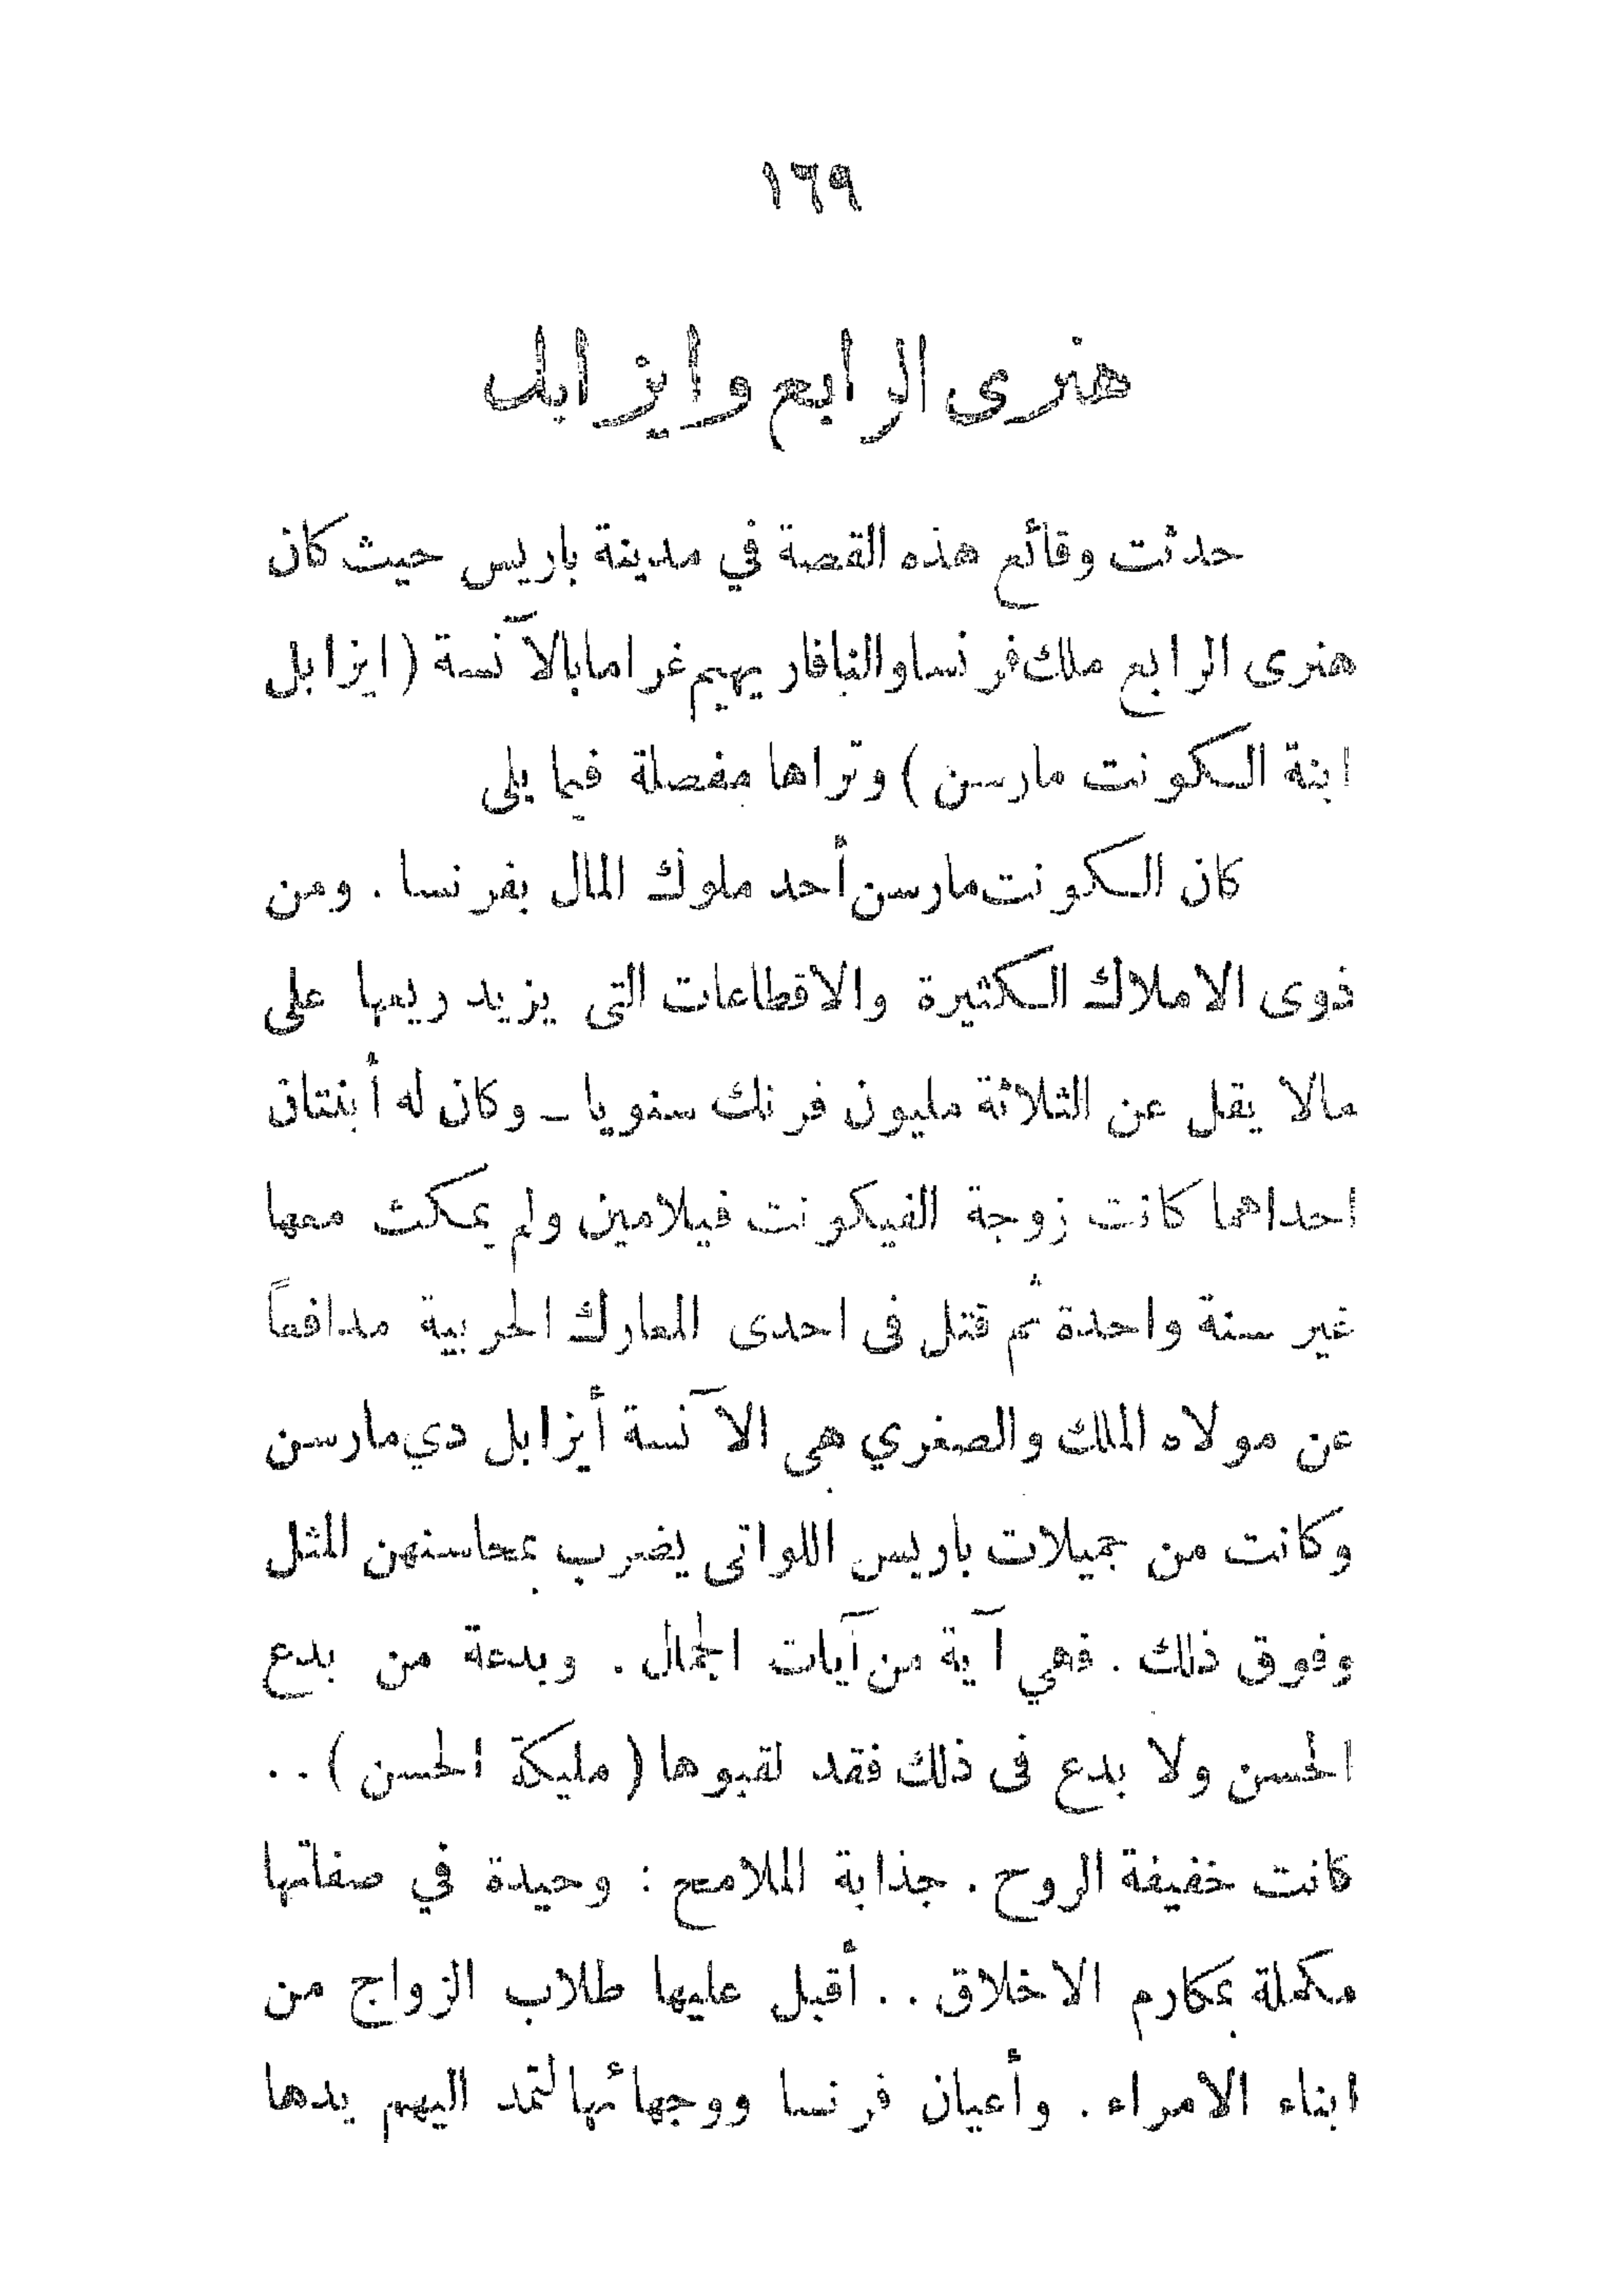 ١٦٩
هنرى الرابع وايزابل
حدثت وقائع هذه القصة في مدينة باريس حيث كان
هنرى الرابع ملك فرنسا والنافار يهيم غراما بالآنسة (ايزابل
ابنة الكونت مارسن) وتراها مفصلة فيما يلى
كان الكونت مارسن أحد ملوك المال بفرنسا. ومن
ذوى الاملاك الكثيرة والاقطاعات التى يزيد ريعها على
مالا يقل عن الثلاثة مليون فرنك سنويا ـ وكان له أبنتان
احداهما كانت زوجة الفيكونت فيلامين ولم يمكث معها
غير سنة واحدة ثم قتل فى احدى المعارك الحربية مدافعاً
عن مولاه الملك والصغري هى الآنسة أيزابل دي مارسن
وكانت من جميلات باريس اللواتى يضرب بمحاسنهن المثل
وفوق ذلك. فهي آية من آيات الجمال. وبدعة من بدع
الحسن ولا بدع فى ذلك فقد لقبوها (مليكة الحسن)..
كانت خفيفة الروح. جذابة الملامح: وحيدة في صفاتها
مكملة بمكارم الاخلاق.. أقبل عليها طلاب الزواج من
ابناء الامراء. وأعيان فرنسا ووجهائها لتمد اليهم يدها